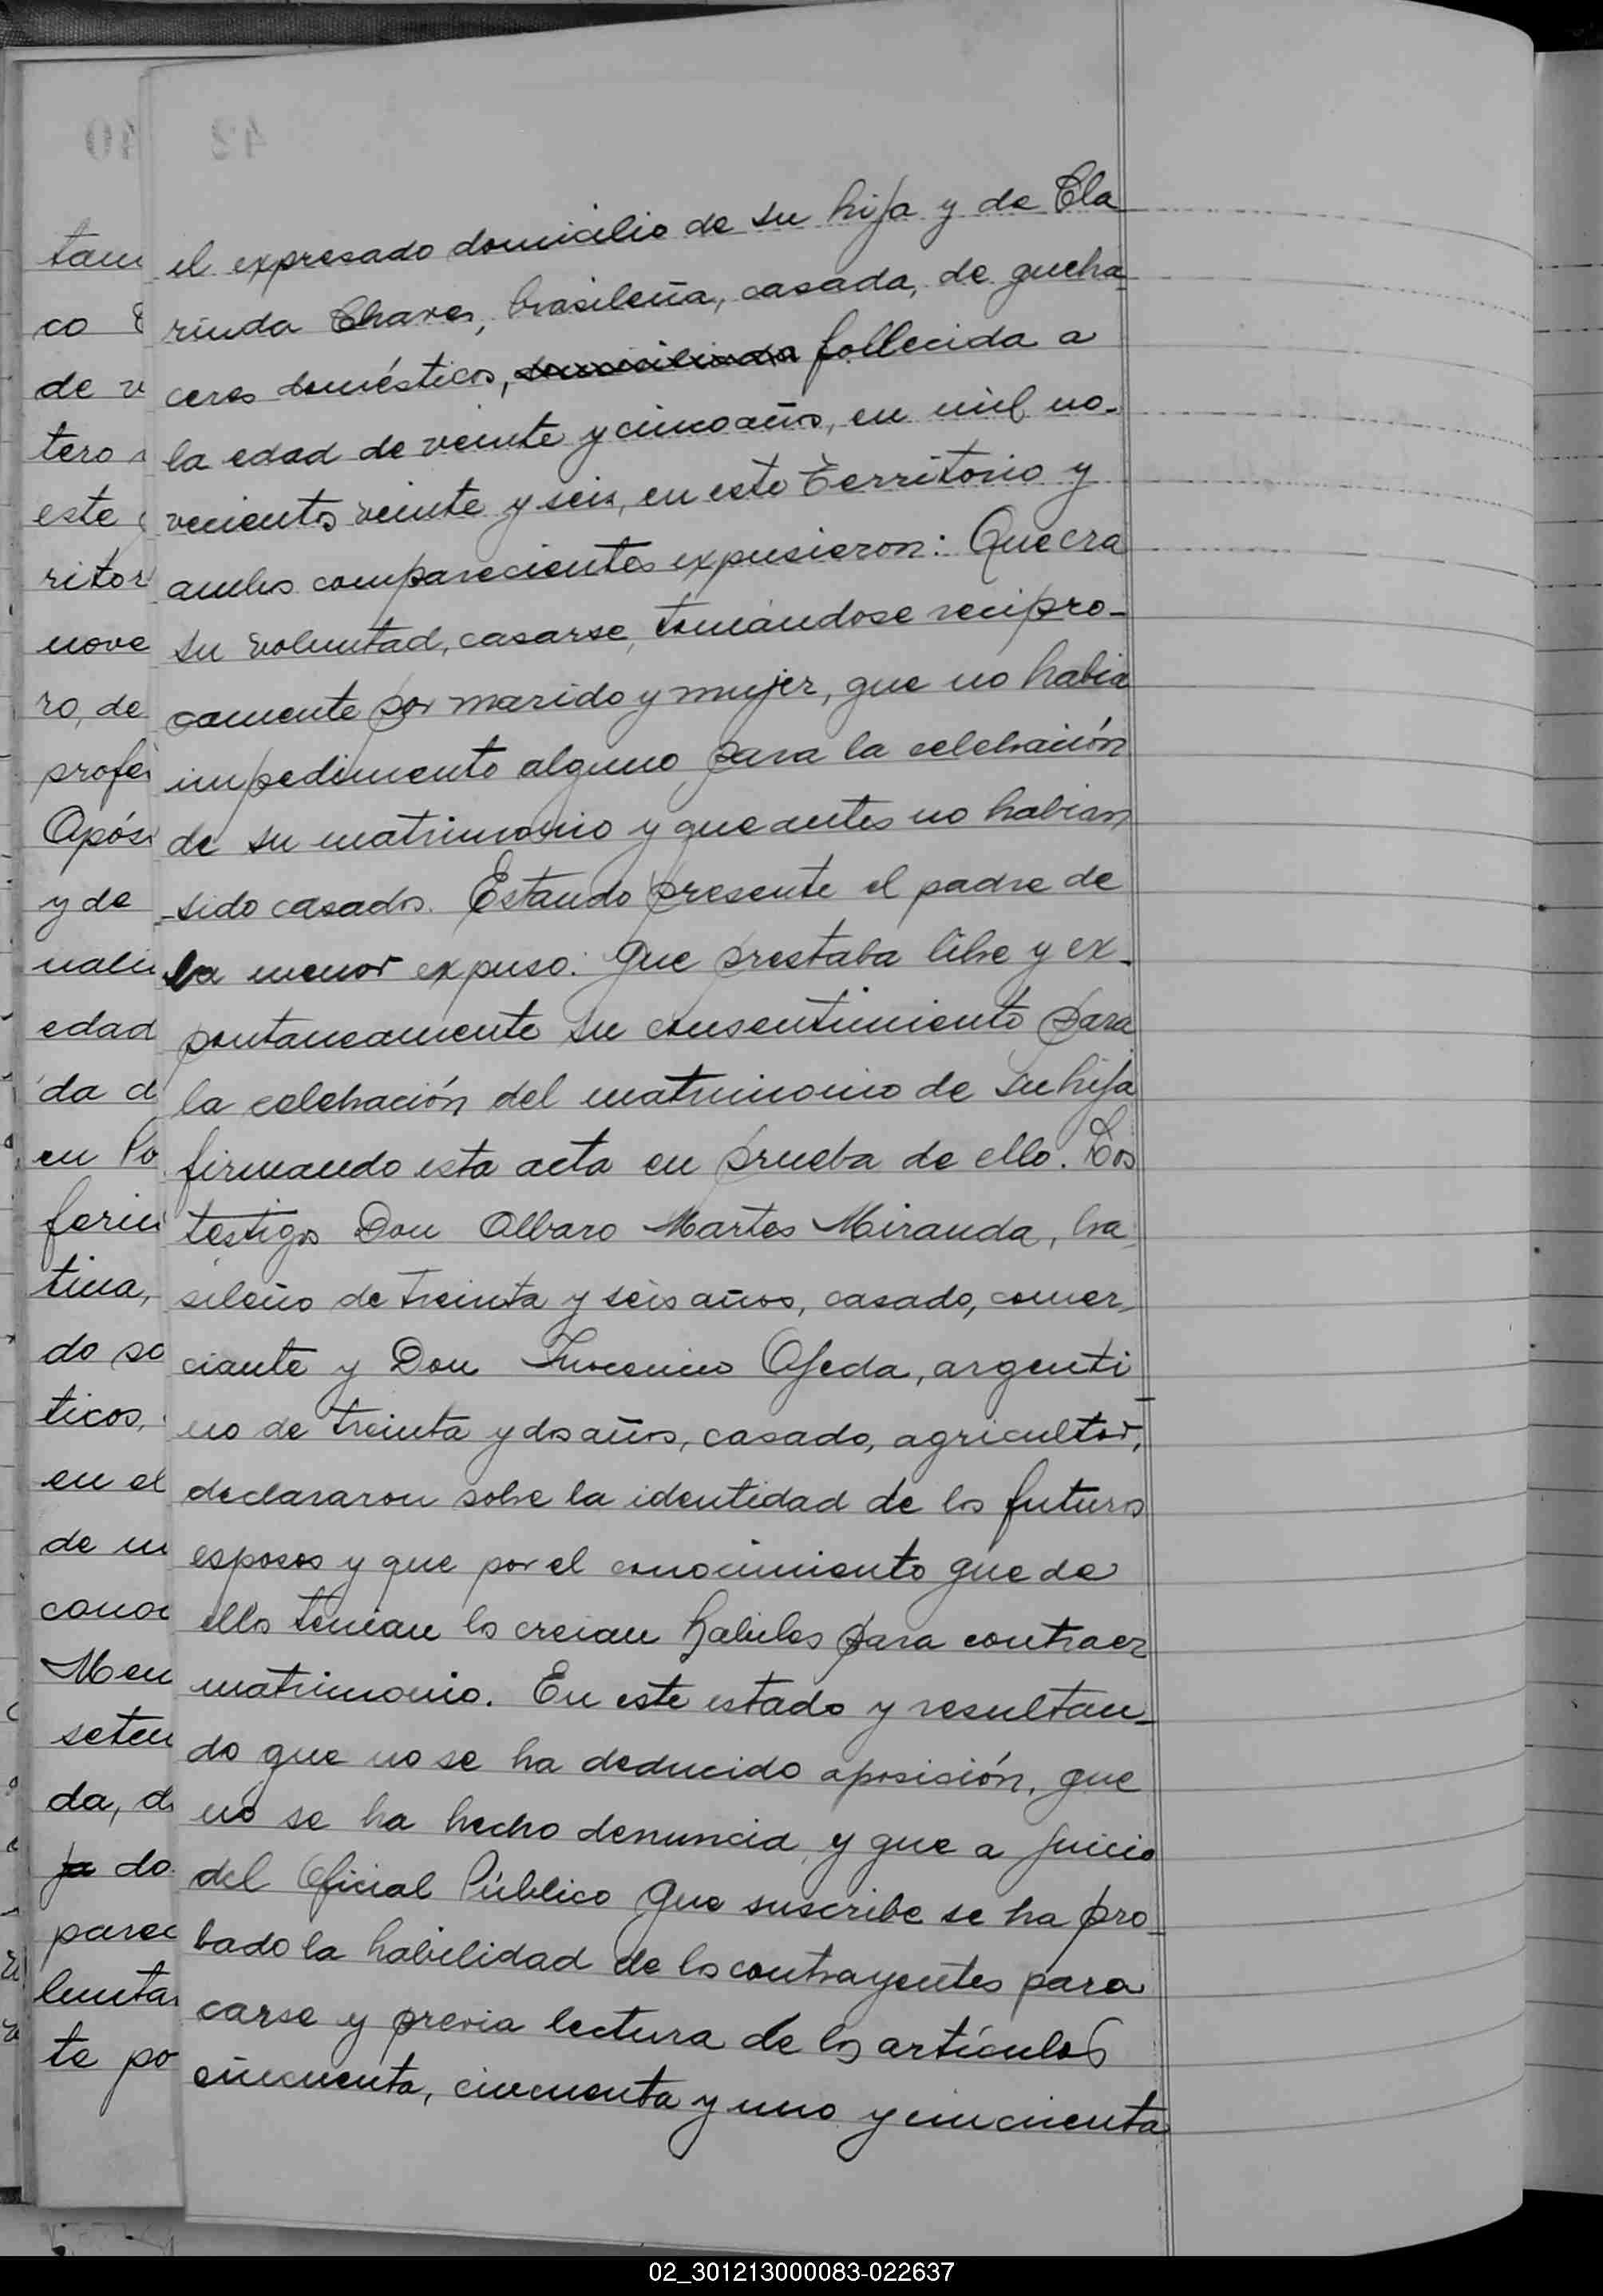 tam
co
de v
tero
este
ritor
nove
ro, de
profe
Após
y de
nalu
edad
da d
en Po
ferm
tina,
do so
ticos,
en el
de m
conoc
Men
seten
da, d
ja do
parec
luntar
te po
el expresado domicilio de su hija y de Cla
rinda Chaves, brasileña, casada, de queha
ceres domésticos, domiciliada fallecida a
la edad de veinte y cinco años, en mil no-
vecientos veinte y seis, en este Territorio y
ambos comparecientes expusieron: Que era
su voluntad, casarse, tomándose recipro-
camente por marido y mujer, que no habia
impedimento alguno para la celebración
de su matrimonio y que antes no habian
sido casados. Estando presente el padre de
la menor expuso: Que prestaba libre y ex-
pontaneamente su consentimiento para
la celebración del matrimonio de su hija
firmando esta acta en prueba de ello. Los
testigos Don Albaro Martes Miranda, bra
sileño de treinta y seis años, casado, comer-
ciante y Don Inocencio Ojeda, argenti
no de treinta y dos años, casado, agricultor,
declararon sobre la identidad de los futuros
esposos y que por el conocimiento que de
ellos tenian los creian habiles para contraer
matrimonio. En este estado y resultan-
do que no se ha deducido oposisión, que
no se ha hecho denuncia, y que a juicio
del Oficial Público que suscribe se ha pro-
bado la habilidad de los contrayentes para
carse y previa lectura de los artículos
cincuenta, cincuenta y uno y cincuenta
02_301213000083-022637